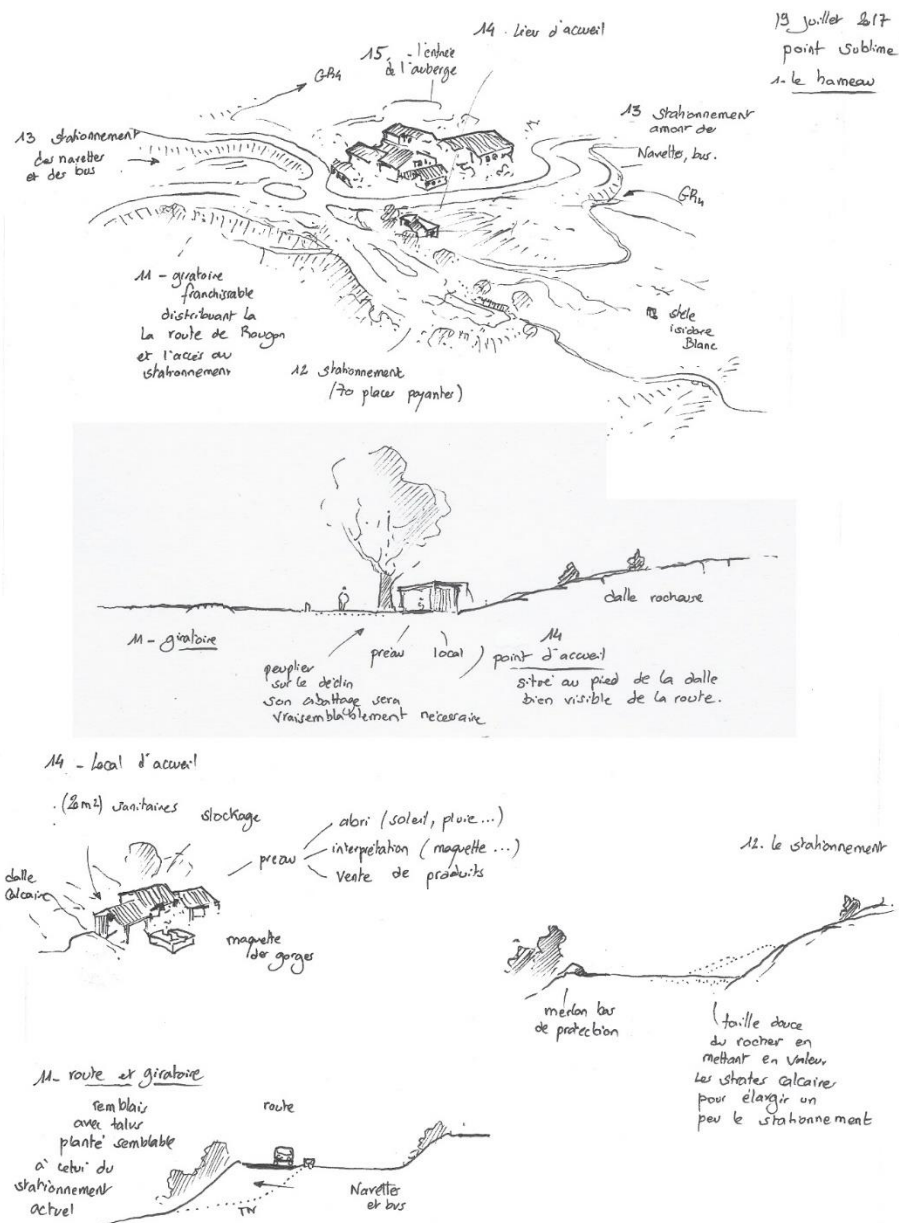 19 juillet 2017
point sublime
1- le hameau
14 - Lieu d'accueil
15 - l'entrée
de l'auberge
GR4
13 stationnement
des navettes
et des bus
13 stationnement
amont de
Navettes, bus.
GR4
11 - giratoire
franchissable
distribuant la
La route de Rougon
et l'accès au
stationnement
12 stationnement
(70 places payantes)
stèle
isidore
Blanc
11 - giratoire
peuplier
sur le déclin
son abattage sera
vraisemblablement nécessaire
préau
local
14
point d'accueil
situé au pied de la dalle
bien visible de la route.
dalle rocheuse
14 - Local d'accueil
(20m2) sanitaires
stockage
dalle
calcaire
préau
abri (soleil, pluie...)
interprétation (maquette ...)
vente de produits
maquette
des gorges
12. le stationnement
merlon bas
de protection
taille douce
du rocher en
mettant en valeur
les strates calcaires
pour élargir un
peu le stationnement
11- route et giratoire
remblais
avec talus
planté semblable
à celui du
stationnement
actuel
route
TN
Navettes
et bus